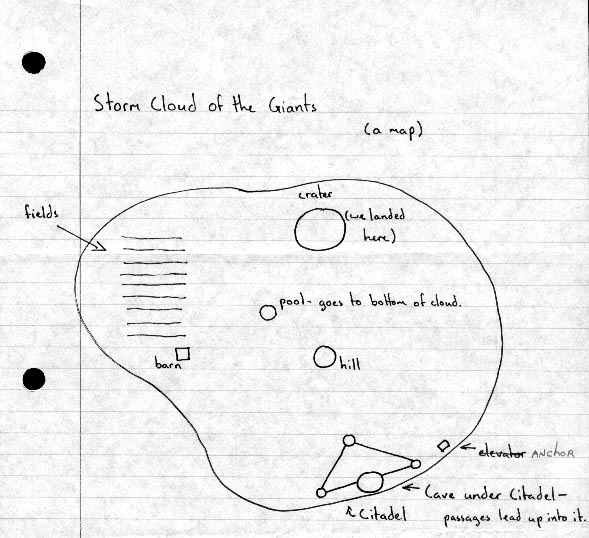 Storm Cloud of the Giants
(a map)
crater
fields
(we landed
here)
pool- goes to bottom of cloud.
barn
hill
elevator ANCHOR
Cave under Citadel-
Citadel
passages lead up into it.